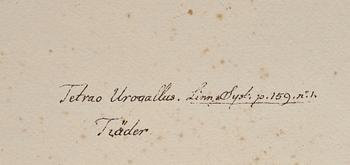 Tetrao Urogallus. Linn. Syst. p. 159. n. 1.
Träder